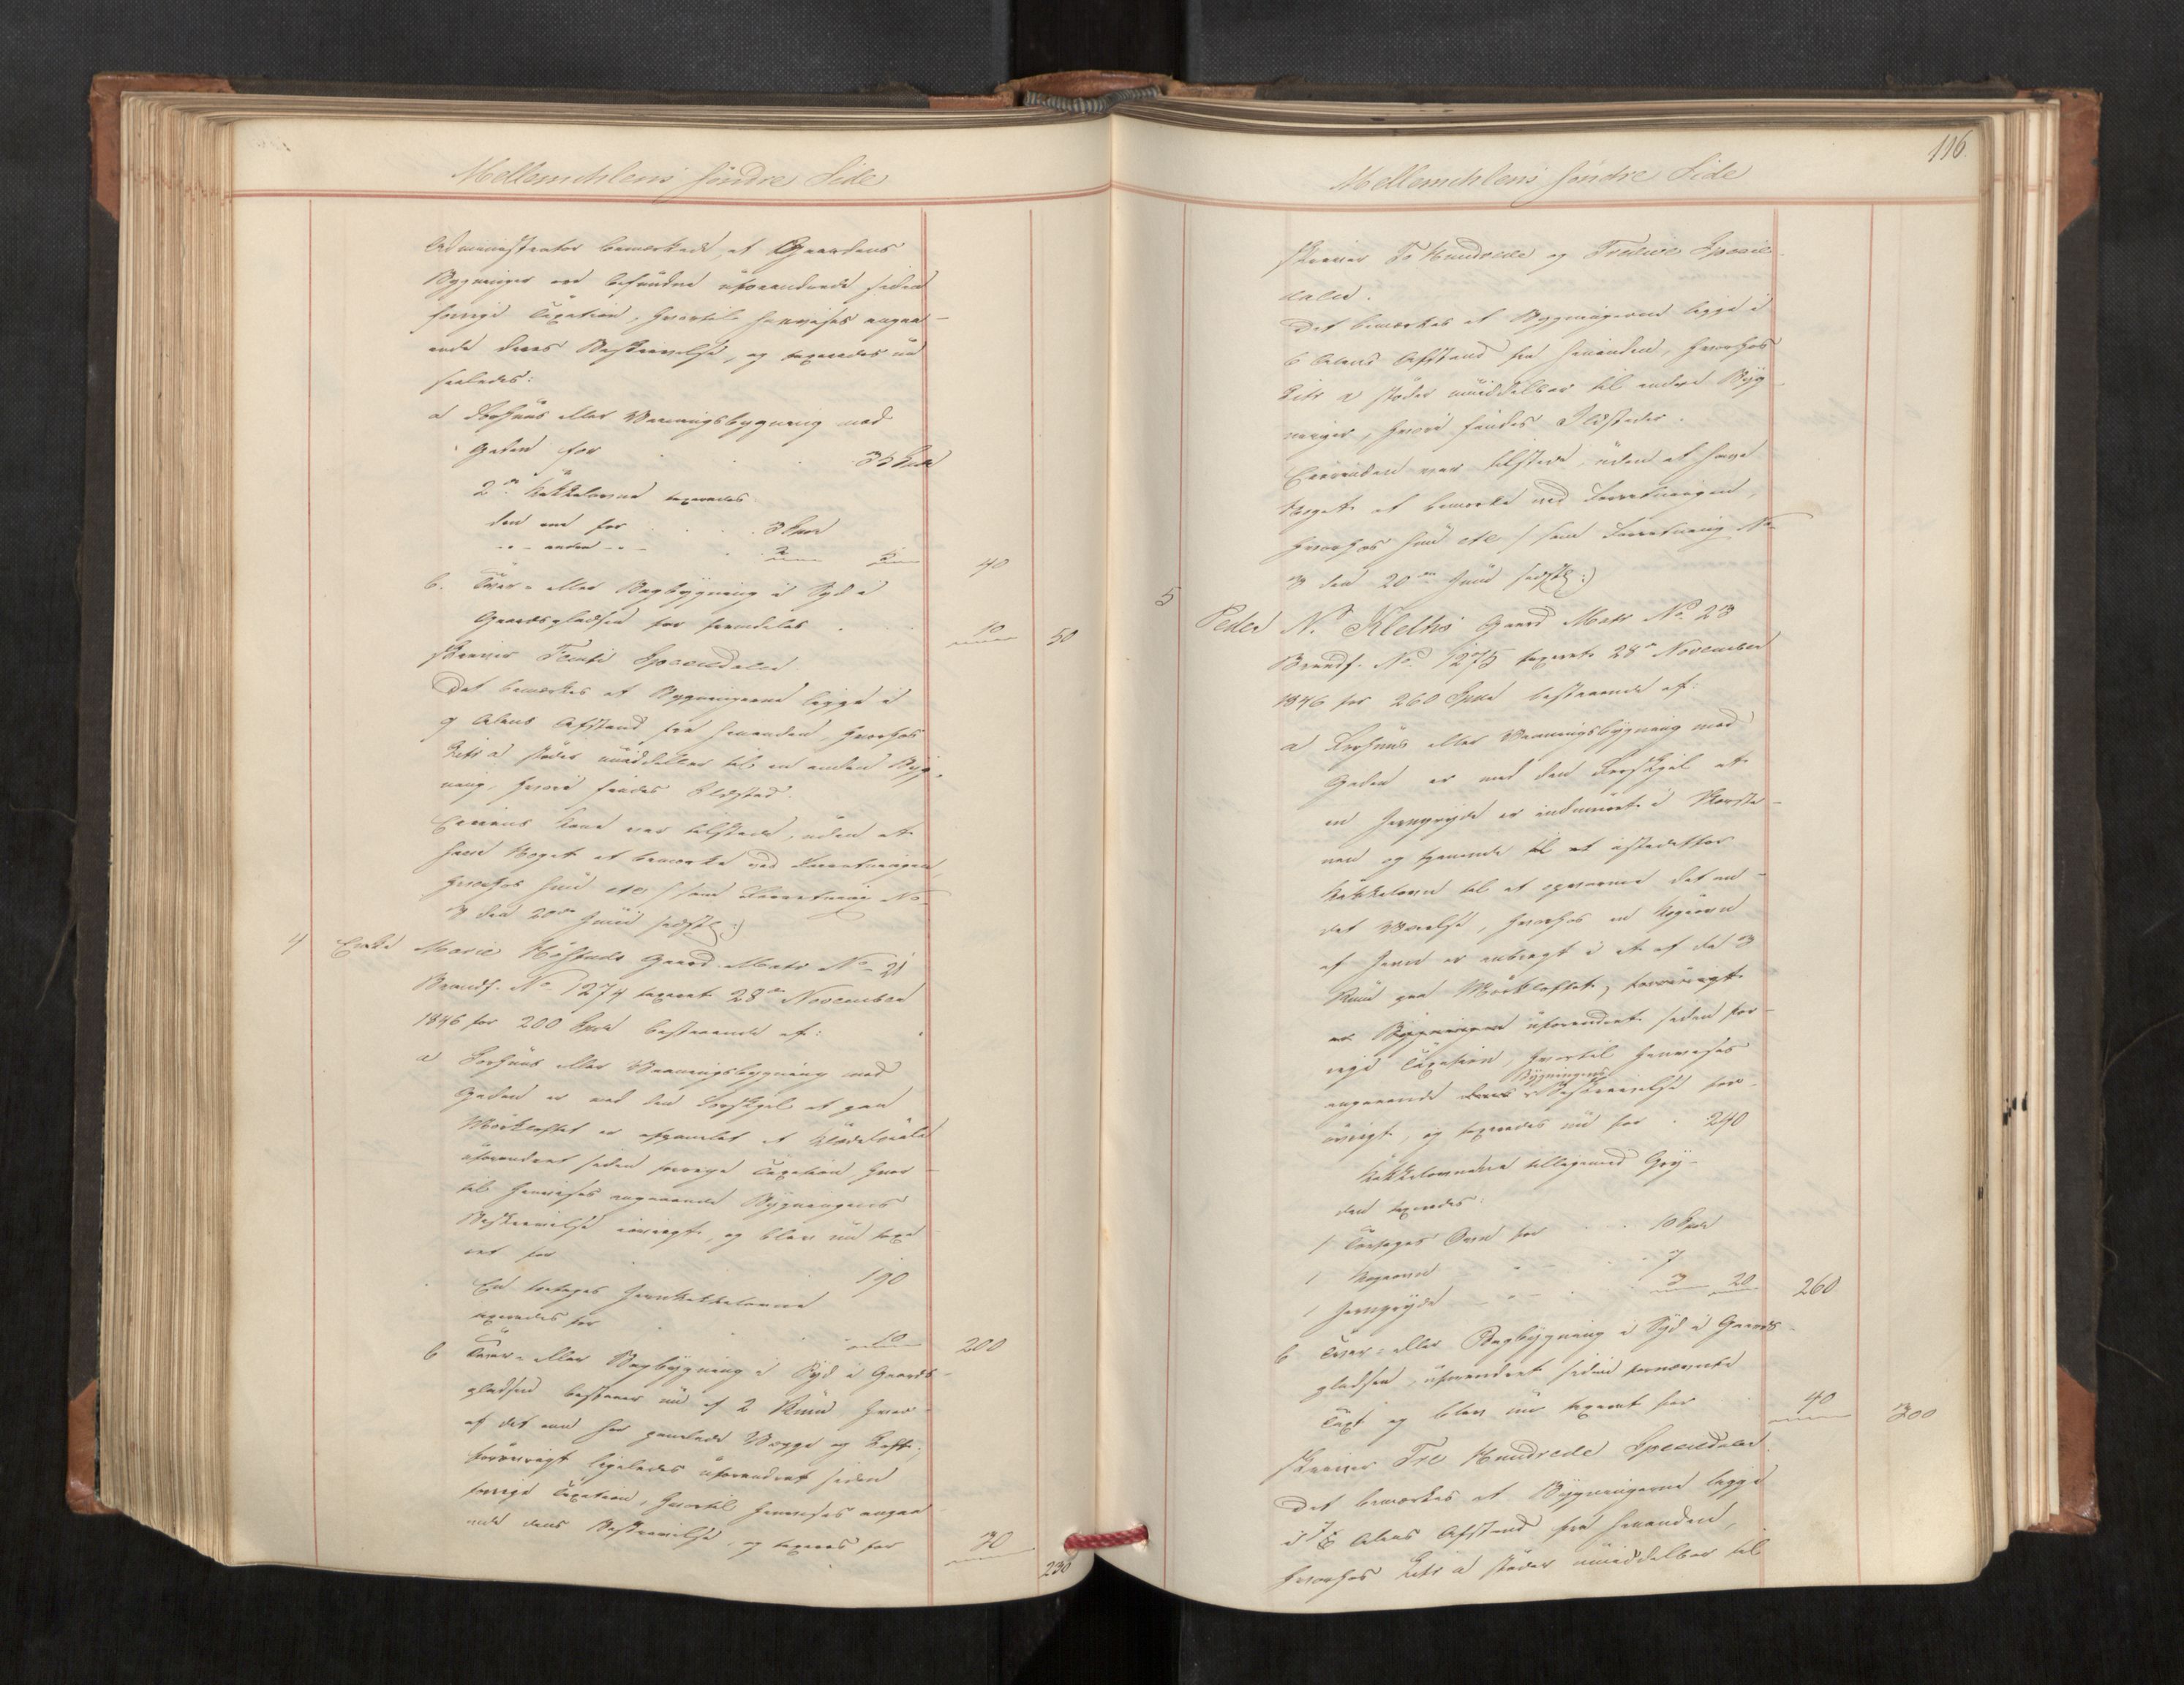 Mellemihlens söndre Side
Administrator bemærkede, at Gaardens
Bygninger ere befundne uforandrede siden
forrige Taxation, hvortil henvises angaa-
ende deres Beskrivelse, og taxeredes nu
saaledes:
a Forhuus eller Vaaningsbygning mod
Gaden for 35 Spd
2de Kakkelovne taxeredes
den ene for 3 Spd
" - anden - " - 2 5 40
b. Tvær- eller Bagbygning i Syd i
Gaardspladsen for fremdeles 10 50
skriver Femti Speciedaler.
Det bemærkes at Bygningerne ligge i
9 Alens Afstand fra hinanden, hvorhos
Litr a støder umiddelbar til en anden Byg-
ning, hvori findes Ildsted.
Eierens Kone var tilstede, uden at
have Noget at bemærke ved Forretningen,
hvorhos hun etc (: som Forretning No
3 den 20de Juni sidstl:)
4 Enke Marie Höstads Gaard Matr No 21
Brandf. No 1274 taxeret 28de November
1846 for 200 Spd bestaaende af:
a Forhuus eller Vaaningsbygning mod
Gaden er med den Forskjel at paa
Mörkloftet er afpanelet et
uforandret siden forrige Taxation, hvor-
til henvises angaaende Bygningens
Beskrivelse iøvrigt, og blev nu taxe-
ret for 190
En toetages Jernkakkelovn
taxeredes for 10 200
b Tvær- eller Bagbygning i Syd i Gaards-
pladsen bestaaer nu af 2 Rum hvor-
af det ene har panelede Vægge og Loft;
forøvrigt ligeledes uforandret siden
forrige Taxation, hvortil henvises angaa-
ende dens Beskrivelse, og taxeres for 30
230
116.
Mellemihlens söndre Side
skriver To Hundrede og Tredive Specie-
daler.
Det bemærkes at Bygningerne ligge i
6 Alens Afstand fra hinanden, hvorhos
Litr a støder umiddelbar til andre Byg-
ninger, hvori findes Ildsteder.
Eierinden var tilstede, uden at have
Noget at bemærke ved Forretningen,
hvorhos hun etc (: som Forretning No
3 den 20de Juni sidstl:)
5 Peder N. Kleths Gaard Matr No 23
Brandf. No 1275 taxeret 28de November
1846 for 260 Spd bestaaende af:
a Forhuus eller Vaaningsbygning mod
Gaden er med den Forskjel at
en Jerngryde er indmuret i Skorste-
nen og tjenende til at istedetfor
Kakkelovn til at opvarme det ene
det Værelse, hvorhos en Kogeovn
af Jern er anbragt i et af de 3
Rum paa Mörkloftet, forøvrigt
er Bygningen uforandret siden for-
rige Taxation, hvortil henvises
angaaende dens Bygningens Beskrivelse for-
øvrigt, og taxeredes nu for 240
Kakkelovnene tilligemed Gry-
den taxeredes:
1 Toetages Ovn for 10 Spd
1 Kogeovn - " - 7
1 Jerngryde - " - 3 20 260
b Tvær- eller Bagbygning i Syd i Gaards-
pladsen, uforandret siden fornævnte
Taxt og blev nu taxeret for 40 300
skriver Tre Hundrede Speciedaler.
Det bemærkes at Bygningerne ligge
i 7 Alens Afstand fra hinanden,
hvorhos Litr a støder umiddelbar til